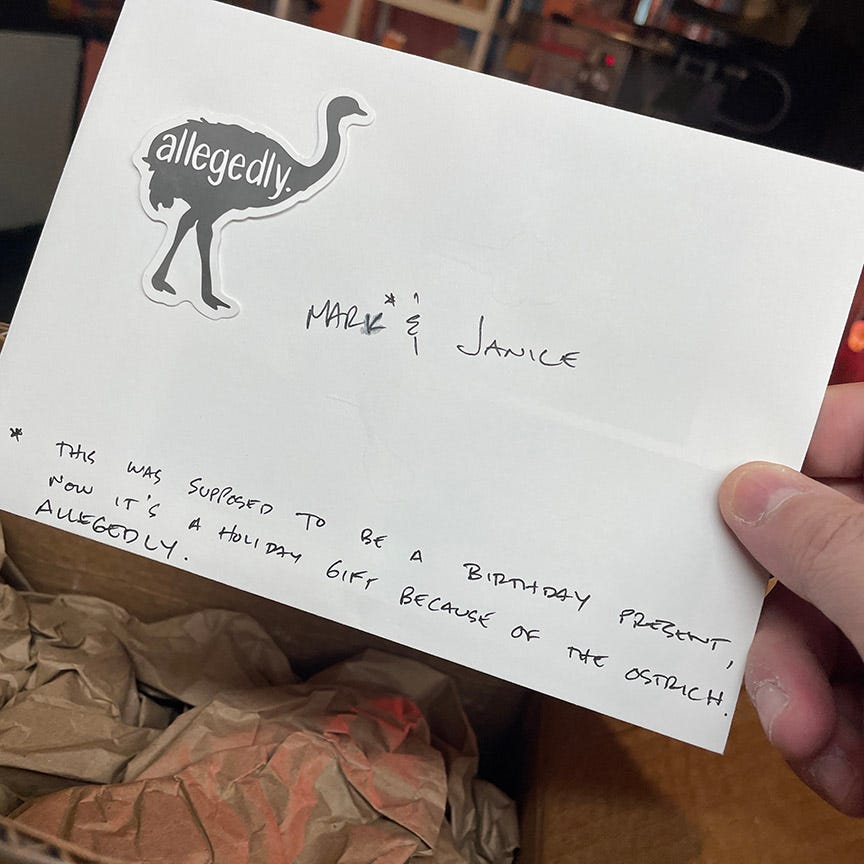 allegedly.
MARK* & JANICE
* THIS WAS SUPPOSED TO BE A BIRTHDAY PRESENT,
NOW IT'S A HOLIDAY GIFT BECAUSE OF THE OSTRICH.
ALLEGEDLY.